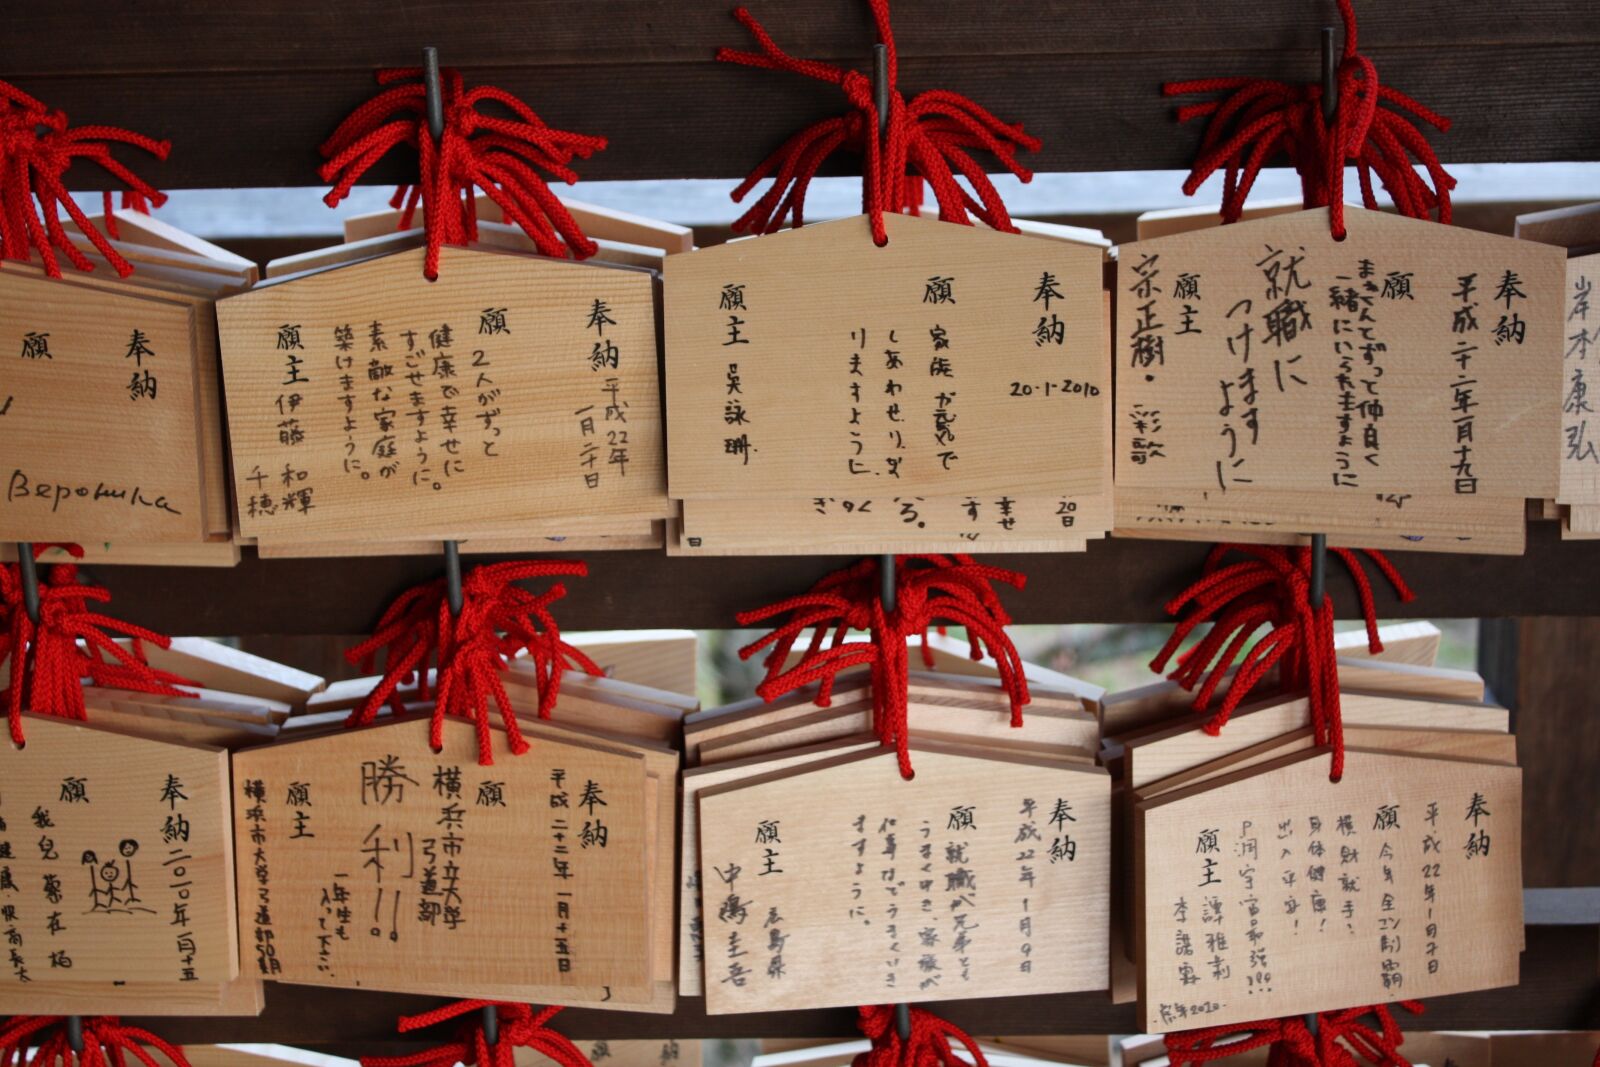 奉納
願
Верочика
奉納
平成22年
一月二十日
願
2人がずっと
健康で幸せに
すごせますように。
素敵な家庭が
築けますように。
願主
伊藤 和輝
千穂
奉納
20・1・2010
願
家族が元気で
しあわせりな
りますように.
願主
吳詠珊.
20日
幸せ
す
奉納
平成二十二年一月十九日
願
一緒にいられますように
就職に
つけます
ように
願主
宗正樹・彩歌
岸本康弘
奉納
二〇一〇年一月十五
願
我兒
奉納
平成二十二年一月十五日
願
横浜市立大学
弓道部
勝利!!
一年生も
入って下さい
願主
横浜市大学弓道部50期
奉納
平成22年1月9日
願
就職が兄弟とも
うまくゆき、家族が
仕事などでうまくいき
ますように。
願主
広島県
中嶋圭吾
奉納
平成22年1月20日
願
横財就手!
身体健康!
出入平安!
願主
譚雅
李
2010